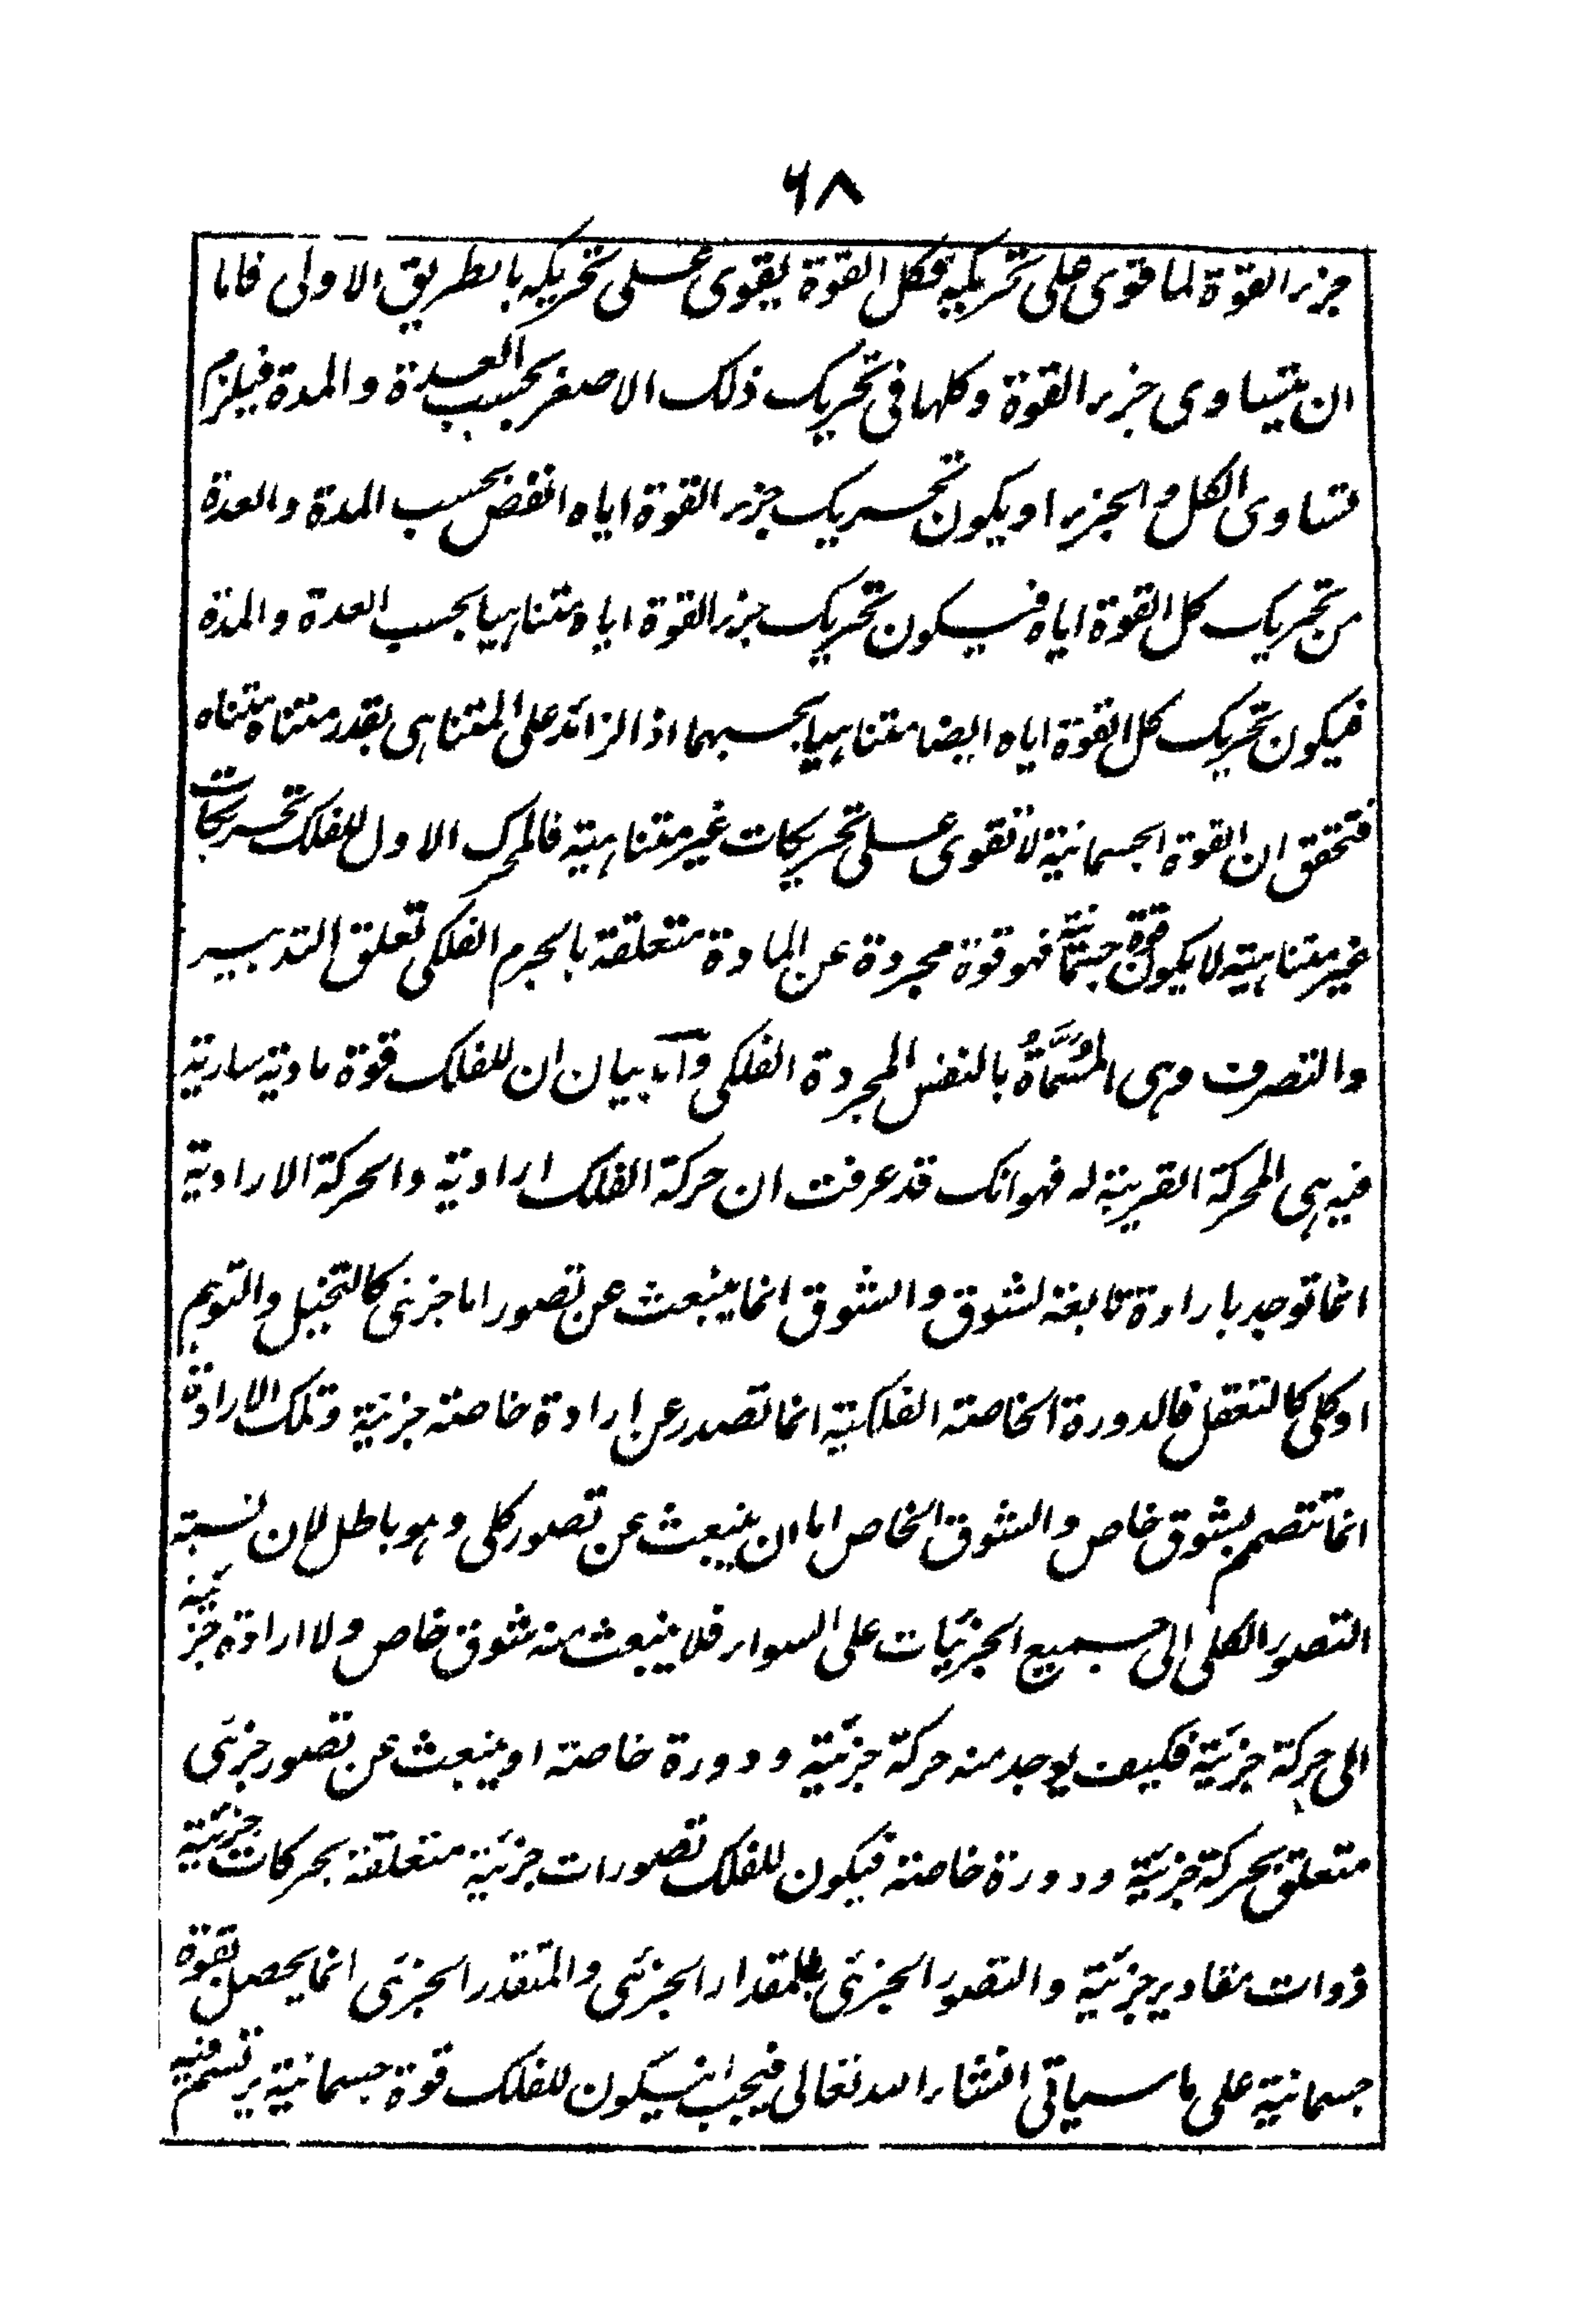 ٦٨
جزء القوة لما قوى على تحريكه فكل القوة يقوى على تحريكه بالطريق الاولى فاما
ان يتساوى جزء القوة وكلها فى تحريك ذلك الاصغر بحسب العدة والمدة فيلزم
تساوى الكل والجزء او يكون تحريك جزء القوة اياه انقص بحسب المدة والعدة
من تحريك كل القوة اياه فيكون تحريك جزء القوة اياه متناهيا بحسب العدة والمدة
فيكون تحريك كل القوة اياه ايضا متناهيا بحسبهما اذ الزائد على المتناهى بقدر متناه متناه
فتحقق ان القوة الجسمانية لا تقوى على تحريكات غير متناهية فالمحرك الاول للفلك تحريكات
غير متناهية لا يكون قوة جسمانية فهو قوة مجردة عن المادة متعلقة بالجرم الفلكى تعلق التدبير
والتصرف وهى المُسمَّاةُ بالنفس المجردة الفلكى وآما بيان ان للفلك قوة مادية سارية
فيه هى المحركة القريبة له فهو انك قد عرفت ان حركة الفلك ارادية والحركة الارادية
انما توجد بارادة تابعة لشوق والشوق انما ينبعث عن تصور اما جزئى كالتخيل والتوهم
او كلى كالتعقل فالدورة الخاصة الفلكية انما تصدر عن ارادة خاصة جزئية وتلك الارادة
انما تتصمم بشوق خاص والشوق الخاص اما ان ينبعث عن تصور كلى وهو باطل لان نسبة
التصور الكلى الى جميع الجزئيات على السواء فلا ينبعث منه شوق خاص ولا ارادة جزئية
الى حركة جزئية فكيف يوجد منه حركة جزئية ودورة خاصة او ينبعث عن تصور جزئى
متعلق بحركة جزئية ودورة خاصة فيكون للفلك تصورات جزئية متعلقة بحركات جزئية
ذوات مقادير جزئية والتصور الجزئى للمقدار الجزئى والمتقدر الجزئى انما يحصل بقوة
جسمانية على ما سياتى انشاء الله تعالى فيجب انيكون للفلك قوة جسمانية يرتسم فيه